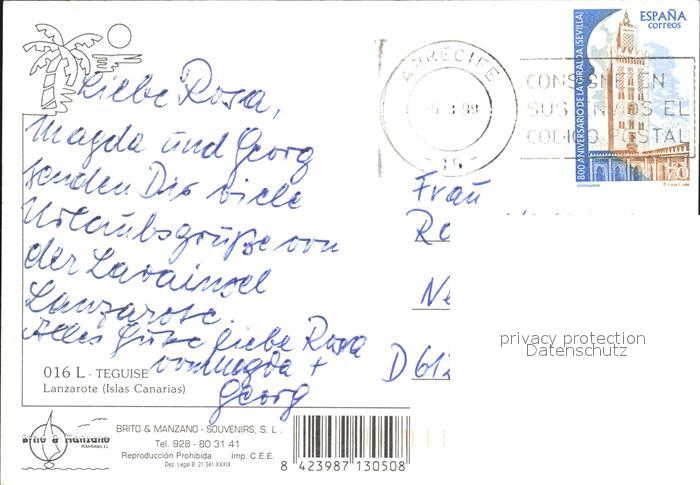 Liebe Rosa,
Magda und Georg
senden Dir viele
Urlaubsgrüße von
der Lavainsel
Lanzarote.
Alles Gute liebe Rosa
von Magda +
Georg
016 L - TEGUISE
Lanzarote (Islas Canarias)
Brito & Manzano
SOUVENIRS S.L.
BRITO & MANZANO - SOUVENIRS, S. L.
Tel. 928 - 80 31 41
Reproducción Prohibida Imp. C.E.E.
Dep. Legal B. 21.341-XXXIX
8 423987 130508
ARRECIFE
CONSIGNE EN
SUS ENVIOS EL
CODIGO POSTAL
ESPAÑA
correos
800 ANIVERSARIO DE LA GIRALDA (SEVILLA)
70
Frau
Ro
Ne
D 612
privacy protection
Datenschutz